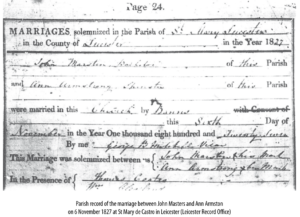 Page 24.
MARRIAGES solemnized in the Parish of St Mary Leicester
in the County of Leicester in the Year 1827
John Marston of this Parish
and Ann Armstrong of this Parish
were married in this Church by Banns with Consent of
this Sixth Day of
November in the Year One thousand eight hundred and Twenty Seven
By me George Vicar
This Marriage was solemnized between us John Marston
Ann Armstrong
In the Presence of Thomas
Parish record of the marriage between John Masters and Ann Armston
on 6 November 1827 at St Mary de Castro in Leicester (Leicester Record Office)